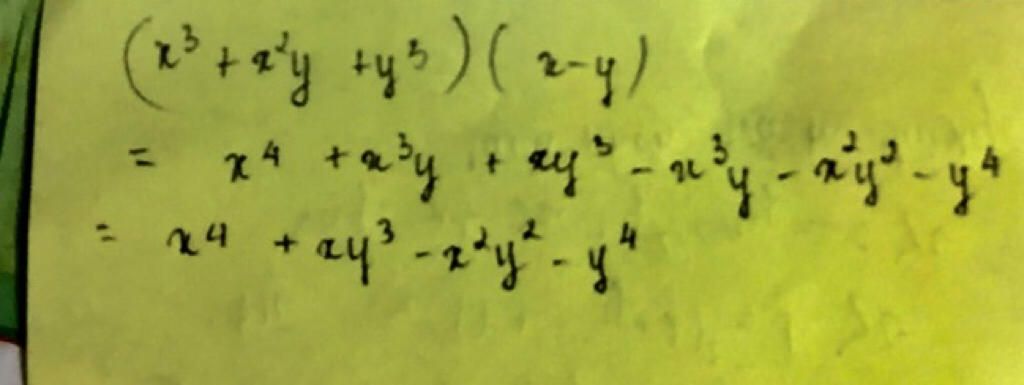 (x³ + x²y + y³)(x - y)
= x⁴ + x³y + xy³ - x³y - x²y² - y⁴
= x⁴ + xy³ - x²y² - y⁴